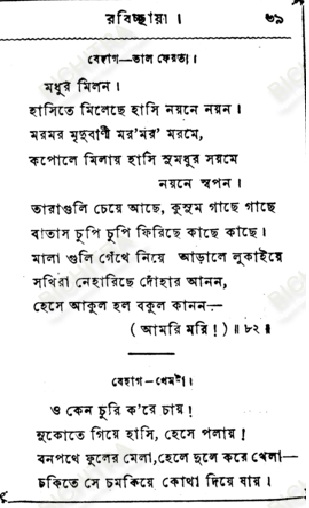 রবিচ্ছায়া। ৩৯
বেহাগ—তাল ফেরতা।
মধুর মিলন।
হাসিতে মিলেছে হাসি নয়নে নয়ন॥
মরমর মৃদুবাণী মর'মর' মরমে,
কপোলে মিলায় হাসি সুমধুর সরমে
নয়নে স্বপন॥
তারাগুলি চেয়ে আছে, কুসুম গাছে গাছে
বাতাস চুপি চুপি ফিরিছে কাছে কাছে।
মালা গুলি গেঁথে নিয়ে আড়ালে লুকাইয়ে
সখিরা নেহারিছে দোঁহার আনন,
হেসে আকুল হল বকুল কানন—
( আমরি মরি! )॥ ৮২॥
বেহাগ—খেমটা।
ও কেন চুরি ক'রে চায়!
মুকোতে গিয়ে হাসি, হেসে পলায়!
বনপথে ফুলের মেলা, হেলে দুলে করে খেলা—
চকিতে সে চমকিয়ে কোথা দিয়ে যায়।